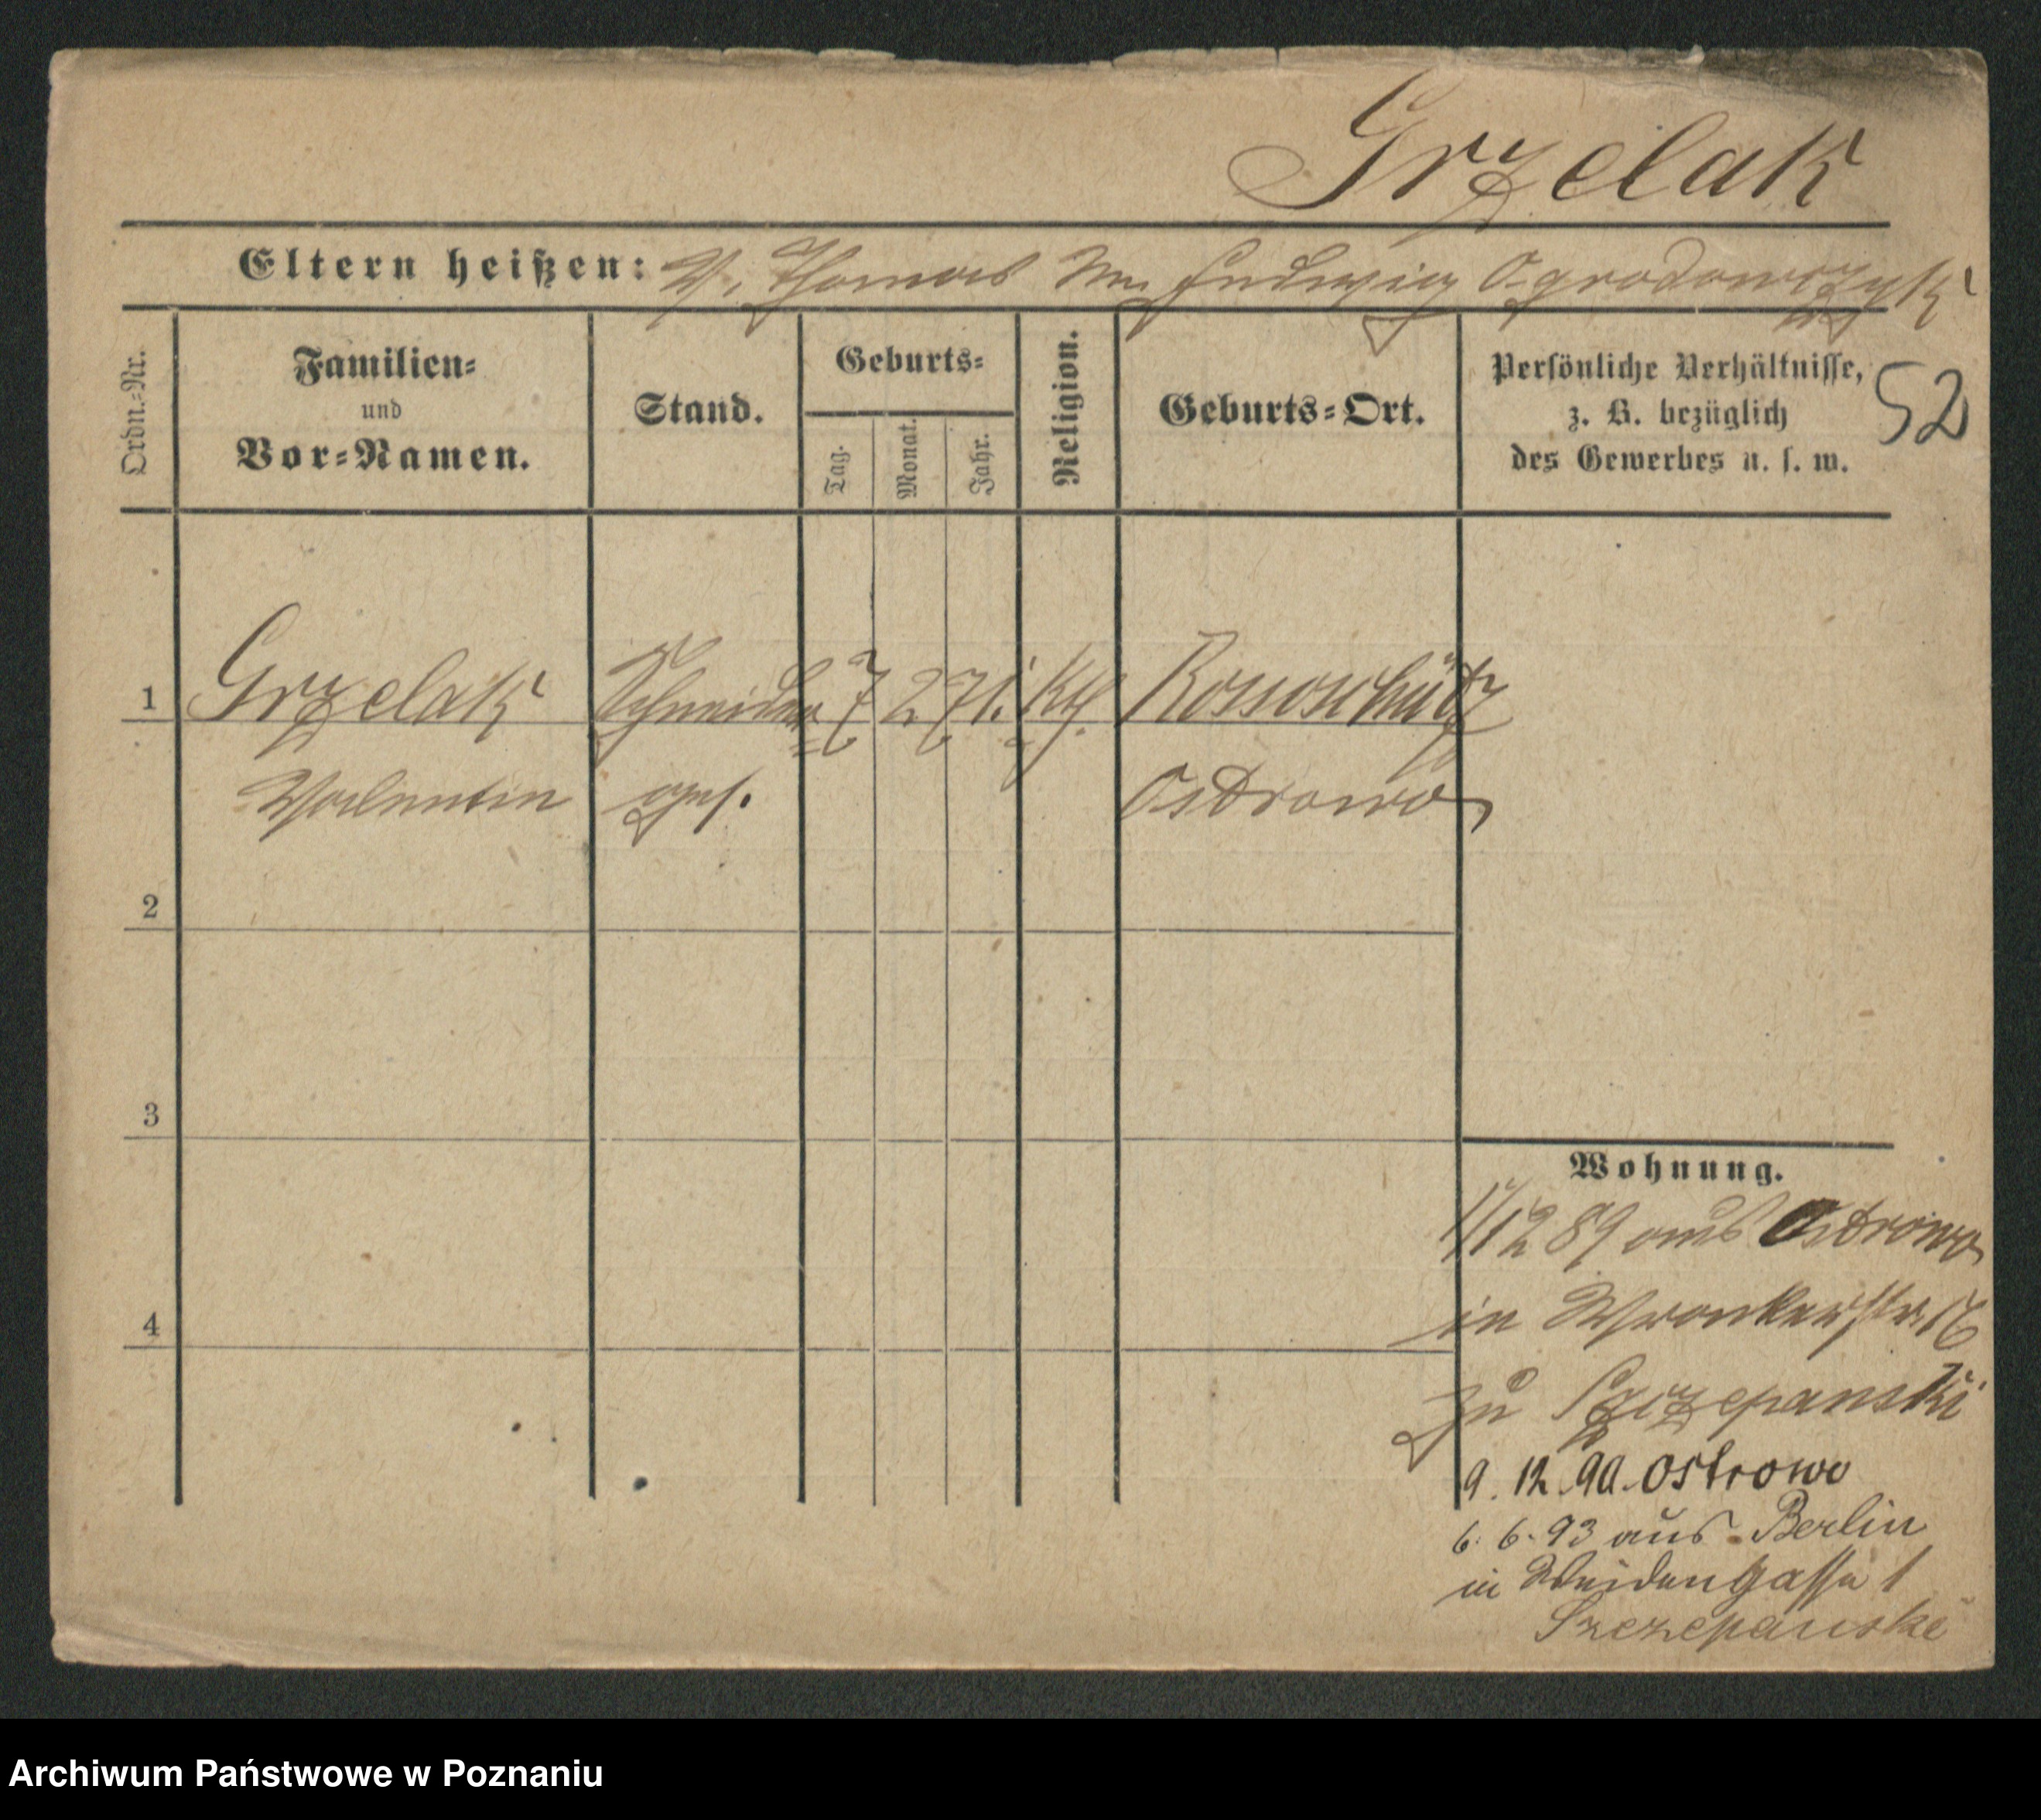 Grzelak
Eltern heißen: V. Thomas M. Hedwig Ogrodowczyk
Ordn.-Nr.
Familien-
und
Vor-Namen.
Stand.
Geburts-
Tag.
Monat.
Jahr.
Religion.
Geburts-Ort.
Persönliche Verhältnisse,
z. B. bezüglich
des Gewerbes u. s. w.
52
1 Grzelak Schneider 7 2 71. kth. Rososchütz
Valentin ges. Ostrowo
2
3
4
Wohnung.
1/12 89 aus Ostrowo
in Wronkerstr. 16
zu Szczepanski
9. 12. 90. Ostrowo
6. 6. 93 aus Berlin
in Weidengasse 1
Szczepanski
Archiwum Państwowe w Poznaniu